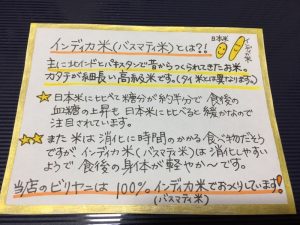 インディカ米(バスマティ米)とは?!
日本米
インディカ米
主に北インドとパキスタンで昔からつくられてきたお米。
カタチが細長い高級米です。(タイ米とは異なります。)
日本米に比べて糖分が約半分で食後の
血糖の上昇も日本米に比べると緩やかなので
注目されています。
また米は消化に時間のかかる食べ物だそう
ですが、インディカ米(バスマティ米)は消化しやすい
ようで食後の身体が軽やか〜です。
当店のビリヤニは100%インディカ米でおつくりしています!
(バスマティ米)